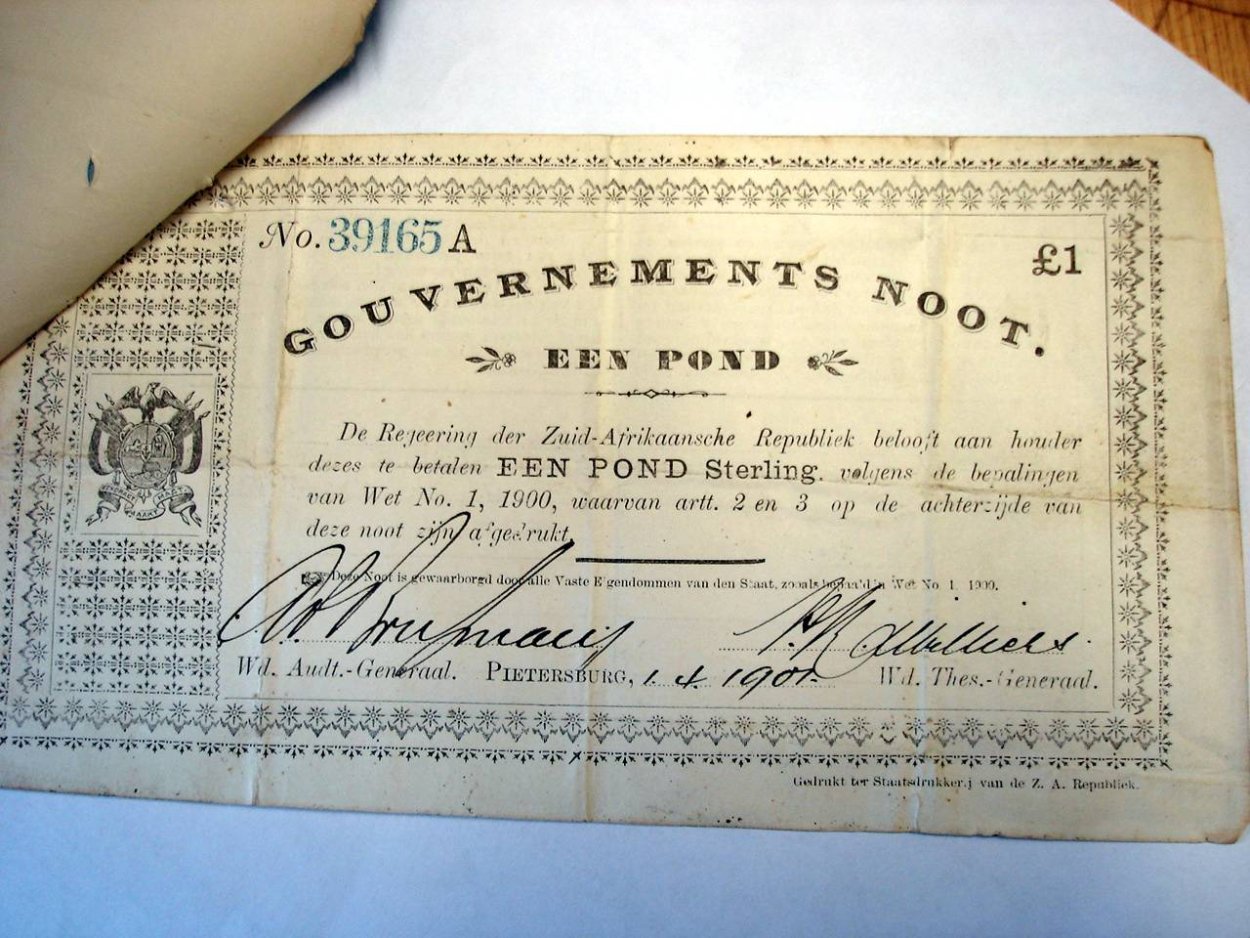 No. 39165 A
£1
GOUVERNEMENTS NOOT.
EEN POND
De Regeering der Zuid-Afrikaansche Republiek belooft aan houder
dezes te betalen EEN POND Sterling, volgens de bepalingen
van Wet No. 1, 1900, waarvan artt. 2 en 3 op de achterzijde van
deze noot zijn afgedrukt
Deze Noot is gewaarborgd door alle Vaste Eigendommen van den Staat, zooals bepaald in Wet No 1 1900.
Wd. Audt.-Generaal. PIETERSBURG, 1.4.1901. Wd. Thes.-Generaal.
Gedrukt ter Staatsdrukkerij van de Z. A. Republiek.